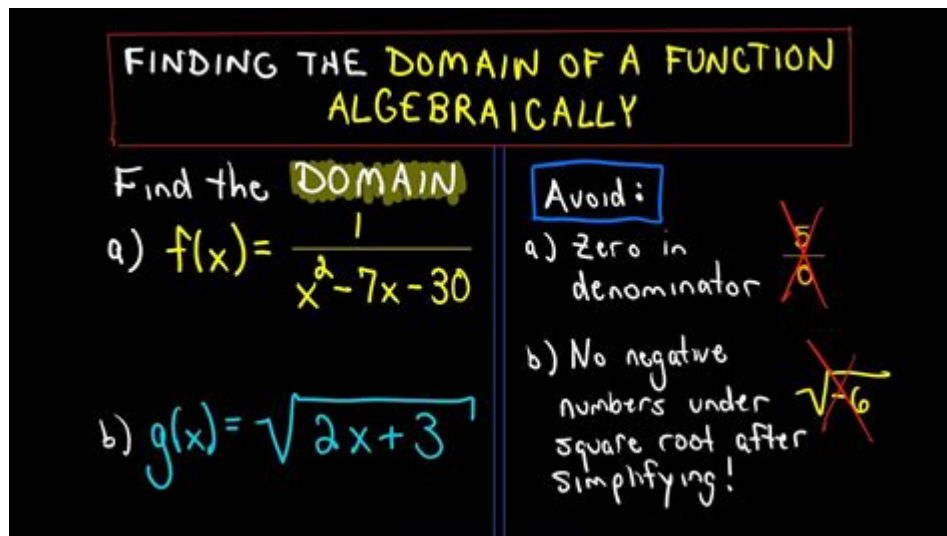 FINDING THE DOMAIN OF A FUNCTION
ALGEBRAICALLY
Find the DOMAIN
a) f(x) = 1/(x²-7x-30)
b) g(x) = √(2x+3)
Avoid:
a) Zero in
denominator
5/0
b) No negative
numbers under
square root after
simplifying!
√-6